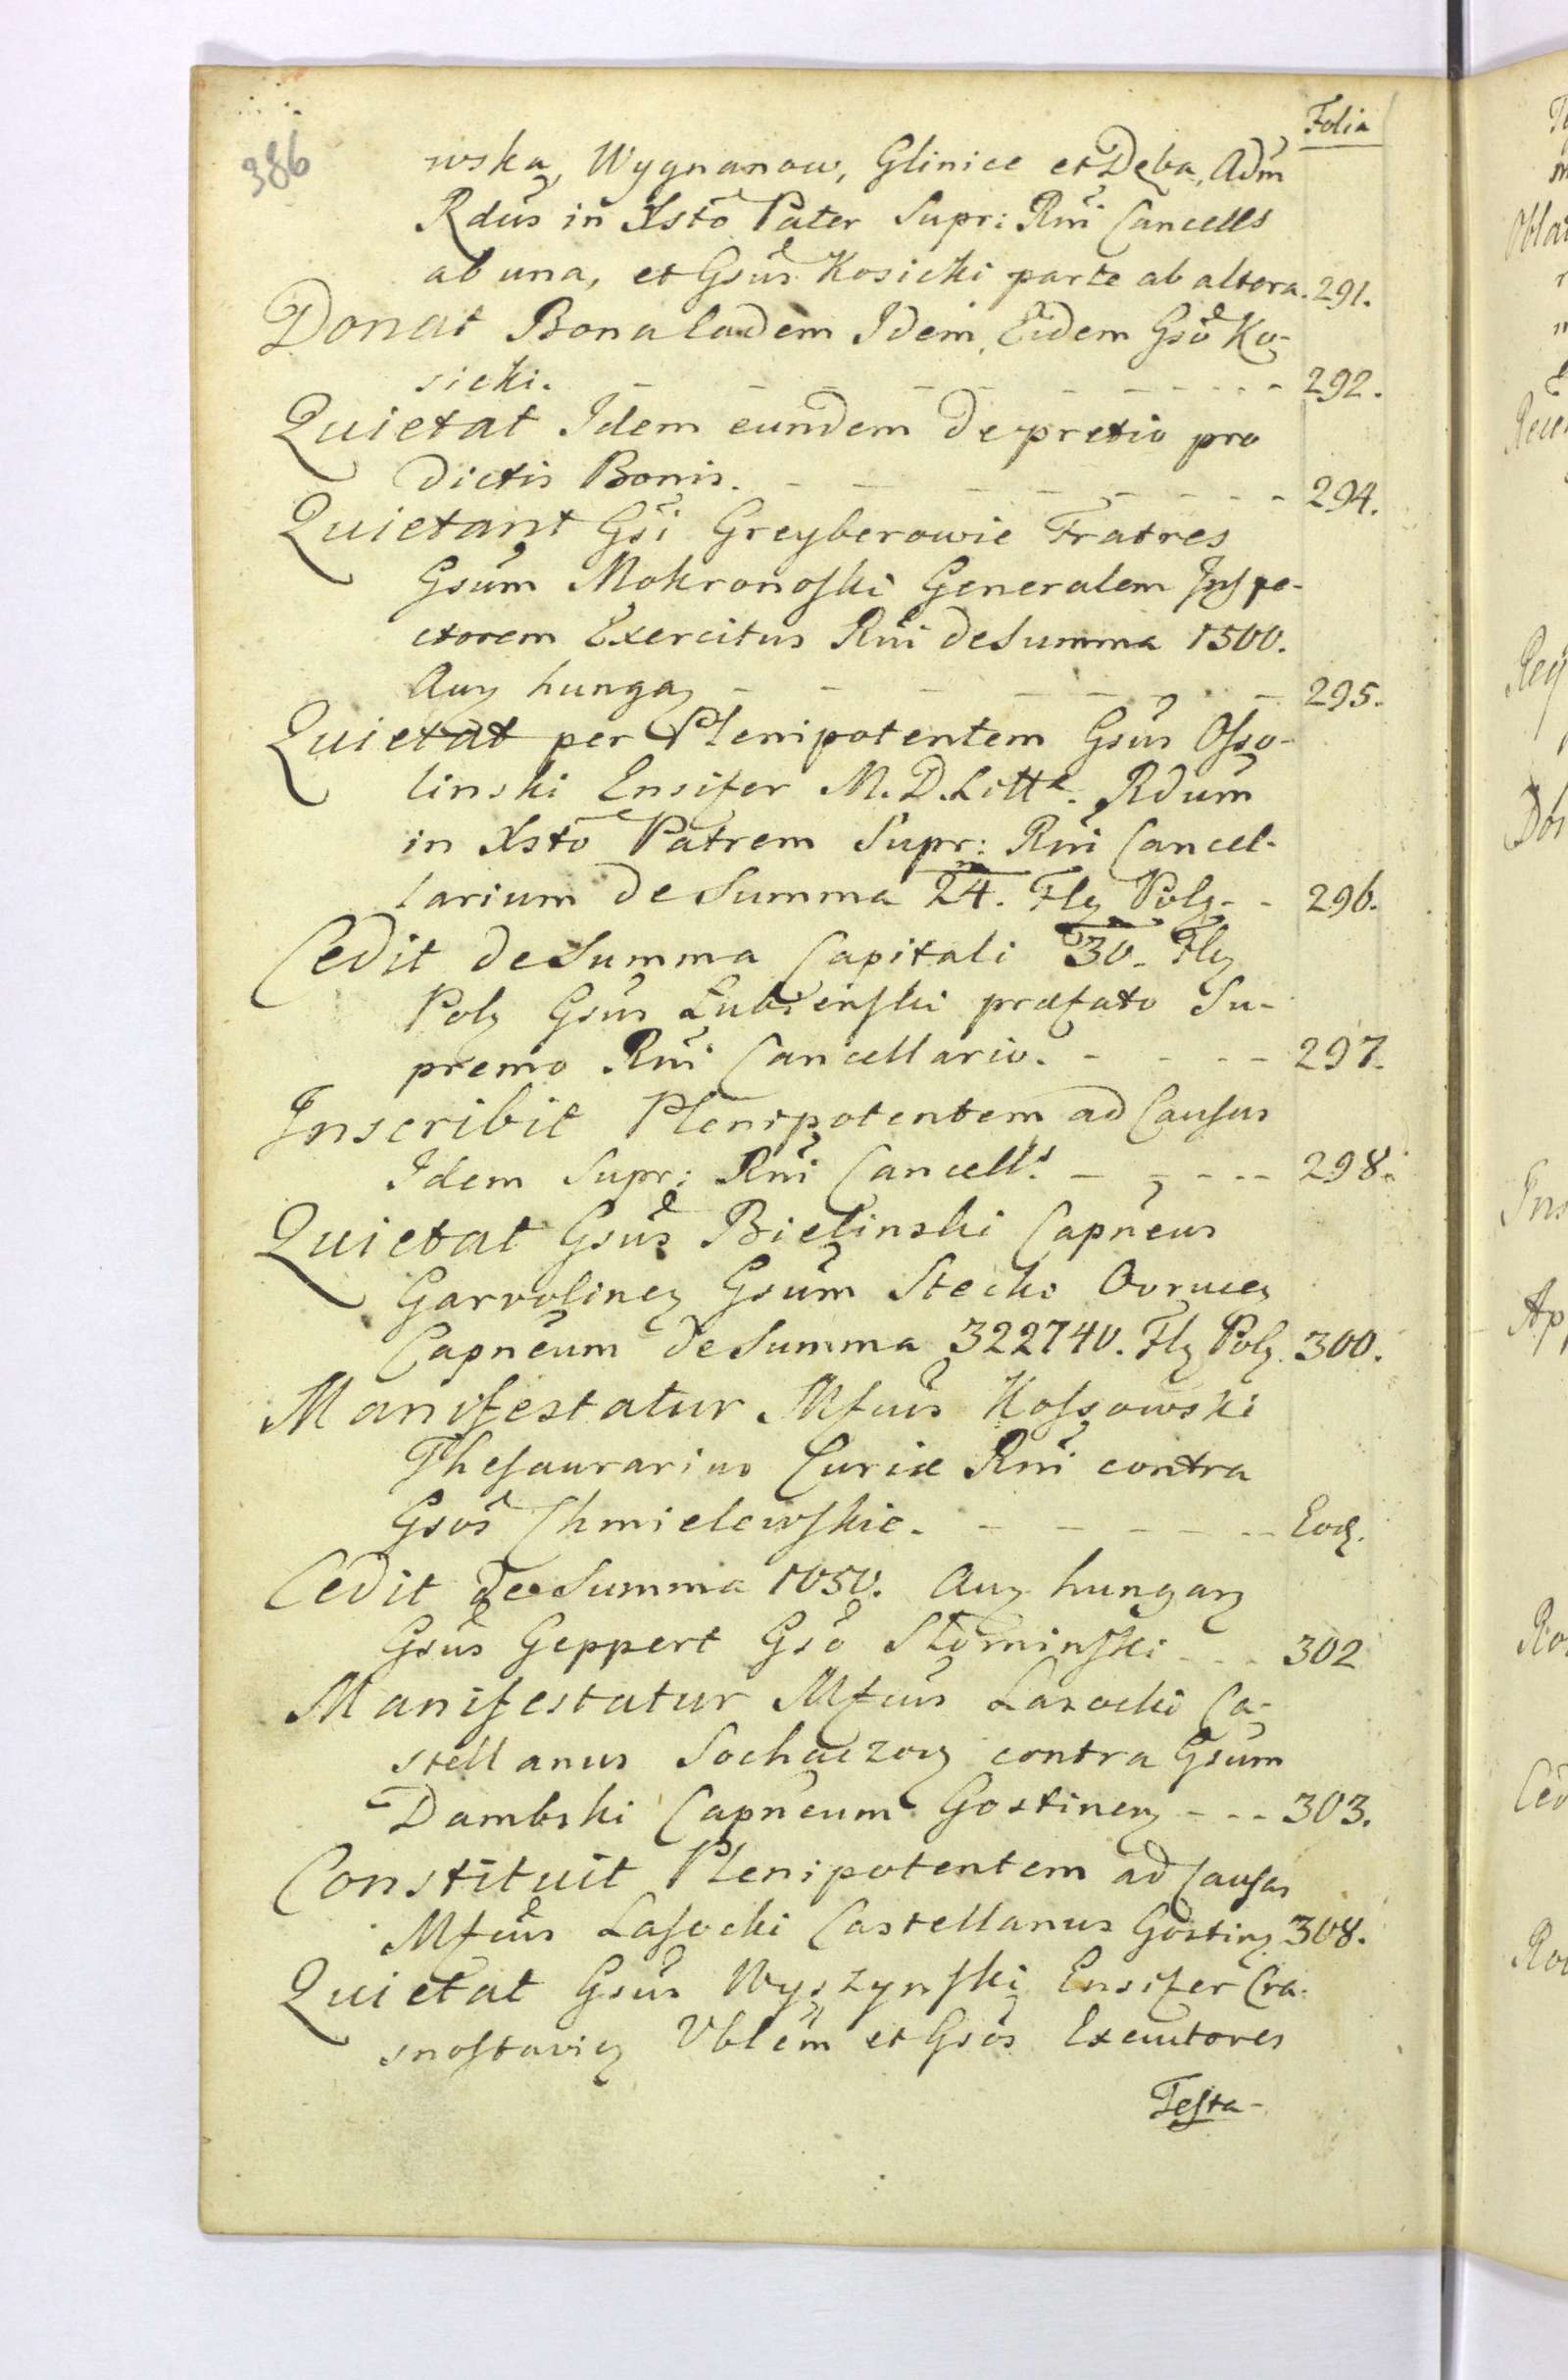 Folia
386
wska, Wygnanow, Glinice et Dęba, Adm
Rdus in Xsto Pater Supr: Rni Cancells
ab una, et Gsus Kosicki parte ab altera. 291.
Donat Bona eadem Idem, Eidem Gso Ko-
sicki. - - - - - - - - - 292.
Quietat Idem eundem de pretio pro
dictis Bonis. - - - - - - - - 294.
Quietant Gsi Greyberowie Fratres
Gsum Mokronoſki Generalem Inſpe-
ctorem Exercitus Rni de Summa 1500.
Auʒ hungaʒ - - - - - - - 295.
Quietat per Plenipotentem Gsus Oſso-
linski Ensifer M. D. Litt. Rdum
in Xsto Patrem Supr: Rni Cancel-
larium de Summa 24. m Flʒ Polʒ - - 296.
Cedit de Summa Capitali 30. Flʒ
Polʒ Gsus Lubienſki præfato Su-
premo Rni Cancellario. - - - - 297.
Inscribit Plenipotentem ad Cauſas
Idem Supr: Rni Cancell.s - - - - 298.
Quietat Gsus Bielinski Capneus
Garvolineʒ Gsum Stecki Ovruceʒ
Capneum de Summa 322740. Flʒ Polʒ. 300.
Manifestatur Mfcus Koſsowski
Theſaurarius Curiæ Rni contra
Gsos Chmielewſkie. - - - - - Eod.
Cedit de Summa 1050. Auʒ hungarʒ
Gsus Geppert Gso Słominſki - - - 302
Manifestatur Mfcus Lasocki Ca-
stellanus Sochaczovʒ contra Gsum
Dambski Capneum Gostinenʒ - - - 303.
Constituit Plenipotentem ad Cauſas
Mfcus Laſocki Castellanus Gostinʒ 308.
Quietat Gsus Wyszynſki Ensifer Cra-
snoſtavieʒ Vblem et Gsos Executores
Teſta-